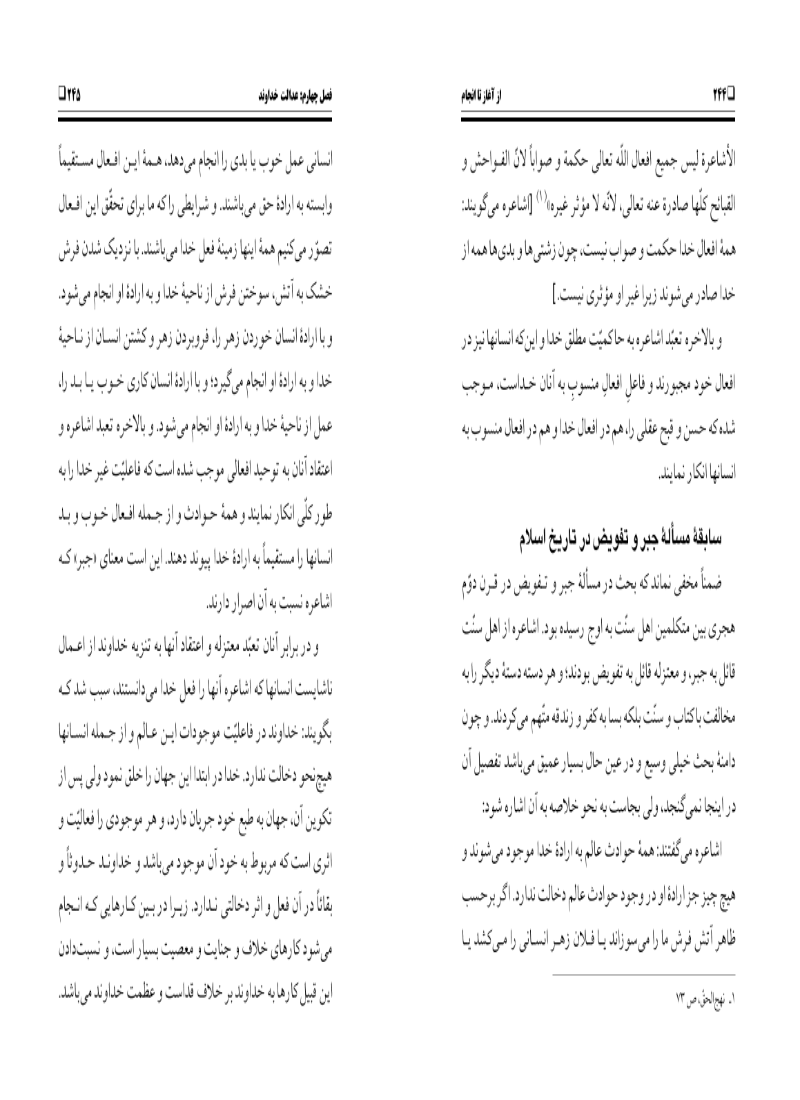 ❏۲۴۴
از آغاز تا انجام
الأشاعرة لیس جمیع افعال اللّه تعالی حکمة و صواباً لانّ الفـواحش و
القبائح کلّها صادرة عنه تعالی، لانّه لا مؤثر غیره»(۱) [اشاعره می‌گویند:
همۀ افعال خدا حکمت و صواب نیست، چون زشتی‌ها و بدی‌ها همه از
خدا صادر می‌شوند زیرا غیر او مؤثری نیست.]
و بالاخره تعبّد اشاعره به حاکمیّت مطلق خدا و این‌که انسانها نیز در
افعال خود مجبورند و فاعلِ افعالِ منسوبِ به آنان خـداست، مـوجب
شده که حسن و قبح عقلی را، هم در افعال خدا و هم در افعال منسوب به
انسانها انکار نمایند.
سابقۀ مسألۀ جبر و تفویض در تاریخ اسلام
ضمناً مخفی نماند که بحث در مسألۀ جبر و تـفویض در قـرن دوّم
هجری بین متکلمین اهل سنّت به اوج رسیده بود. اشاعره از اهل سنّت
قائل به جبر، و معتزله قائل به تفویض بودند؛ و هر دسته دستۀ دیگر را به
مخالفت با کتاب و سنّت بلکه بسا به کفر و زندقه متّهم می‌کردند. و چون
دامنۀ بحث خیلی وسیع و در عین حال بسیار عمیق می‌باشد تفصیل آن
در اینجا نمی‌گنجد، ولی بجاست به نحو خلاصه به آن اشاره شود:
اشاعره می‌گفتند: همۀ حوادث عالم به ارادۀ خدا موجود می‌شوند و
هیچ چیز جز ارادۀ او در وجود حوادث عالم دخالت ندارد. اگر برحسب
ظاهر آتش فرش ما را می‌سوزاند یـا فـلان زهـر انسـانی را مـی‌کشد یـا
۱ـ نهج‌الحقّ، ص ۷۳
فصل چهارم: عدالت خداوند
۲۴۵❏
انسانی عمل خوب یا بدی را انجام می‌دهد، هـمۀ ایـن افـعال مسـتقیماً
وابسته به ارادۀ حق می‌باشند. و شرایطی را که ما برای تحقّق این افـعال
تصوّر می‌کنیم همۀ اینها زمینۀ فعل خدا می‌باشند. با نزدیک شدن فرش
خشک به آتش، سوختن فرش از ناحیۀ خدا و به ارادۀ او انجام می‌شود.
و با ارادۀ انسان خوردن زهر را، فروبردن زهر و کشتن انسـان از نـاحیۀ
خدا و به ارادۀ او انجام می‌گیرد؛ و با ارادۀ انسان کاری خـوب یـا بـد را،
عمل از ناحیۀ خدا و به ارادۀ او انجام می‌شود. و بالاخره تعبد اشاعره و
اعتقاد آنان به توحید افعالی موجب شده است که فاعلیّت غیر خدا را به
طور کلّی انکار نمایند و همۀ حـوادث و از جـمله افـعال خـوب و بـد
انسانها را مستقیماً به ارادۀ خدا پیوند دهند. این است معنای «جبر» کـه
اشاعره نسبت به آن اصرار دارند.
و در برابر آنان تعبّد معتزله و اعتقاد آنها به تنزیه خداوند از اعـمال
ناشایست انسانها که اشاعره آنها را فعل خدا می‌دانستند، سبب شد کـه
بگویند: خداوند در فاعلیّت موجودات ایـن عـالم و از جـمله انسـانها
هیچ‌نحو دخالت ندارد. خدا در ابتدا این جهان را خلق نمود ولی پس از
تکوین آن، جهان به طبع خود جریان دارد، و هر موجودی را فعالیّت و
اثری است که مربوط به خود آن موجود می‌باشد و خداونـد حـدوثاً و
بقائاً در آن فعل و اثر دخالتی نـدارد. زیـرا در بـین کـارهایی کـه انـجام
می‌شود کارهای خلاف و جنایت و معصیت بسیار است، و نسبت‌دادن
این قبیل کارها به خداوند بر خلاف قداست و عظمت خداوند می‌باشد.